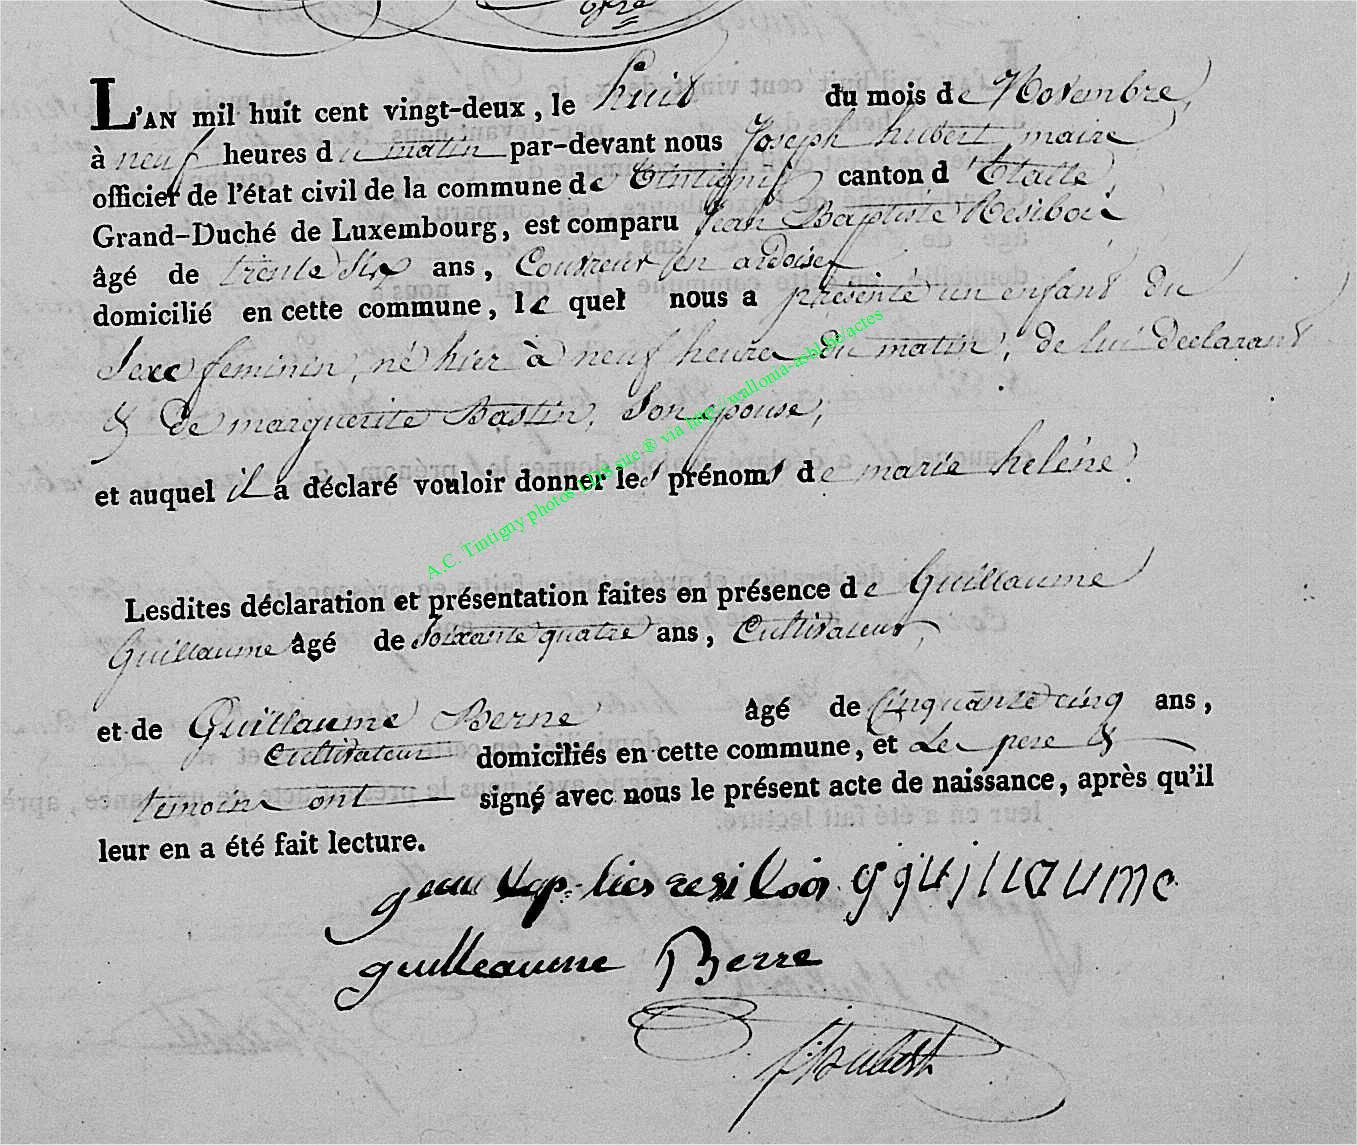 L'AN mil huit cent vingt-deux, le huit du mois de Novembre,
à neuf heures du matin par-devant nous Joseph hubert maire
officier de l'état civil de la commune de Tintigny canton d'Etalle
Grand-Duché de Luxembourg, est comparu Jean Baptiste Resibois
âgé de trente six ans, Couvreur en ardoises
domicilié en cette commune, le quel nous a présenté un enfant du
Sexe feminin, né hier à neuf heures du matin, de lui declarant
& de marguerite Bastin, Son epouse,
et auquel il a déclaré vouloir donner les prénoms de marie heléne
A.C. Tintigny photos LDS site ® via http://wallonia-asbl.be/actes
Lesdites déclaration et présentation faites en présence de Guillaume
Guillaume âgé de Soixante quatre ans, Cultivateur,
et de Guillaume Berne âgé de Cinquante cinq ans,
Cultivateur domiciliés en cette commune, et Les pere &
temoins ont signé avec nous le présent acte de naissance, après qu'il
leur en a été fait lecture.
gguillaume
guilleaume Berre
Hubert